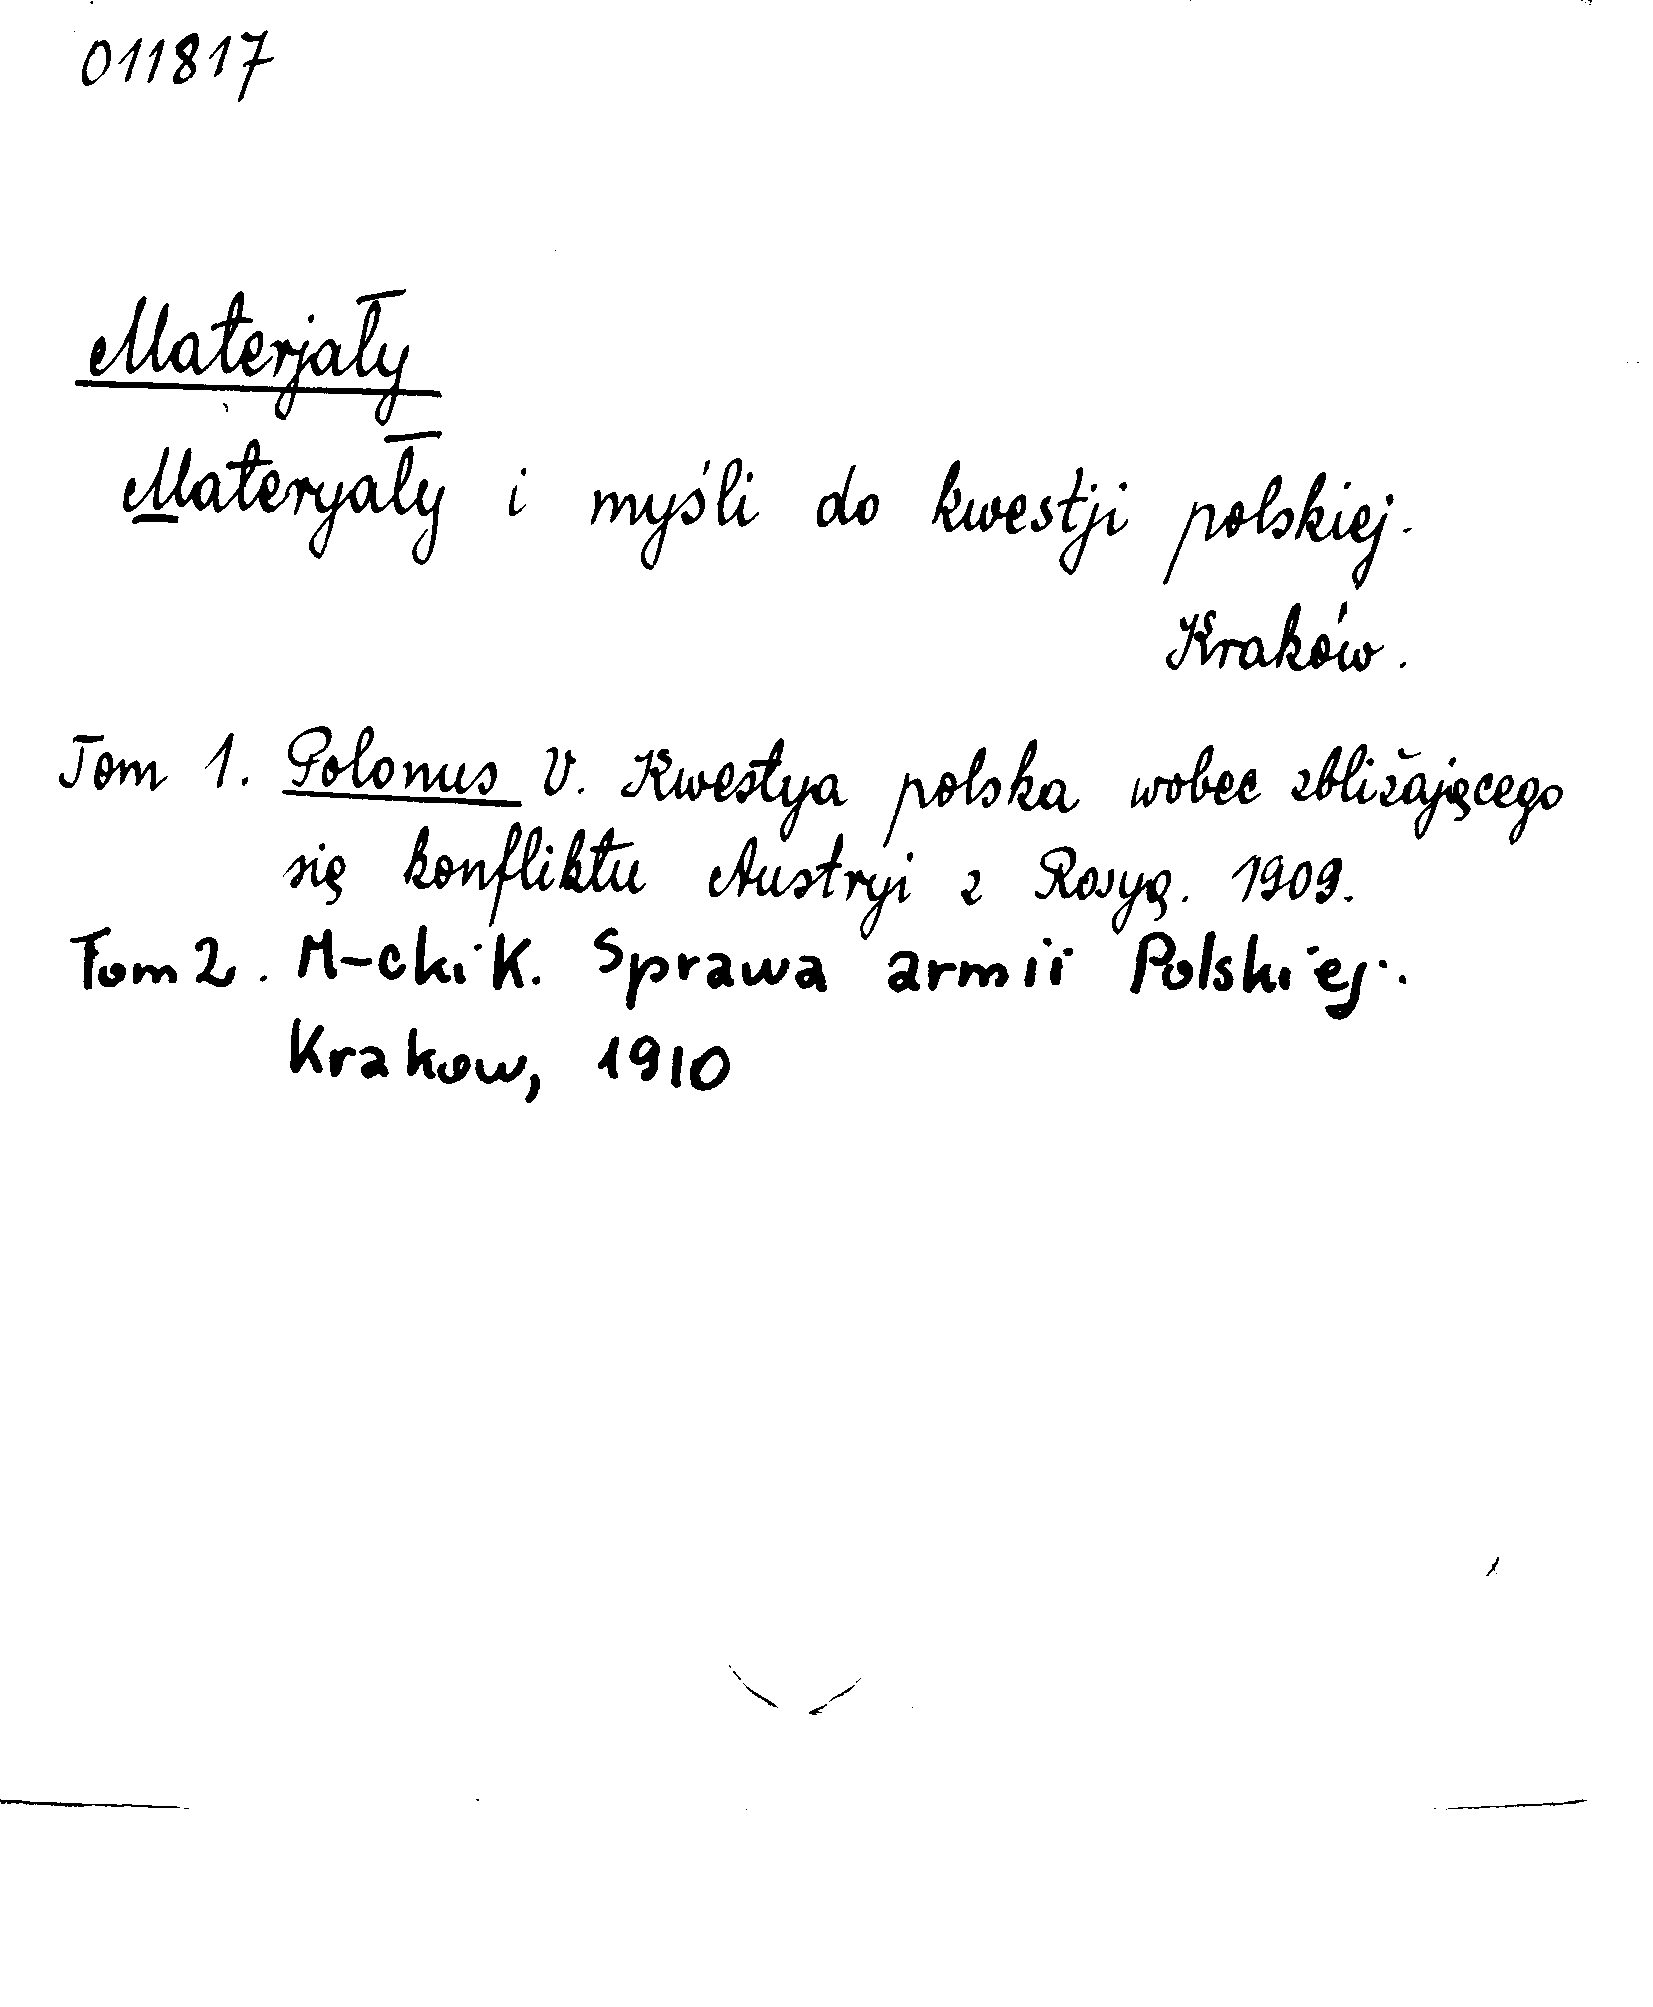 011817
Materjały
Materyały i myśli do kwestji polskiej.
Kraków.
Tom 1. Polonus V. Kwestya polska wobec zbliżającego
się konfliktu Austryi z Rosyą. 1909.
Tom 2. M-cki K. Sprawa armii Polskiej.
Krakow, 1910